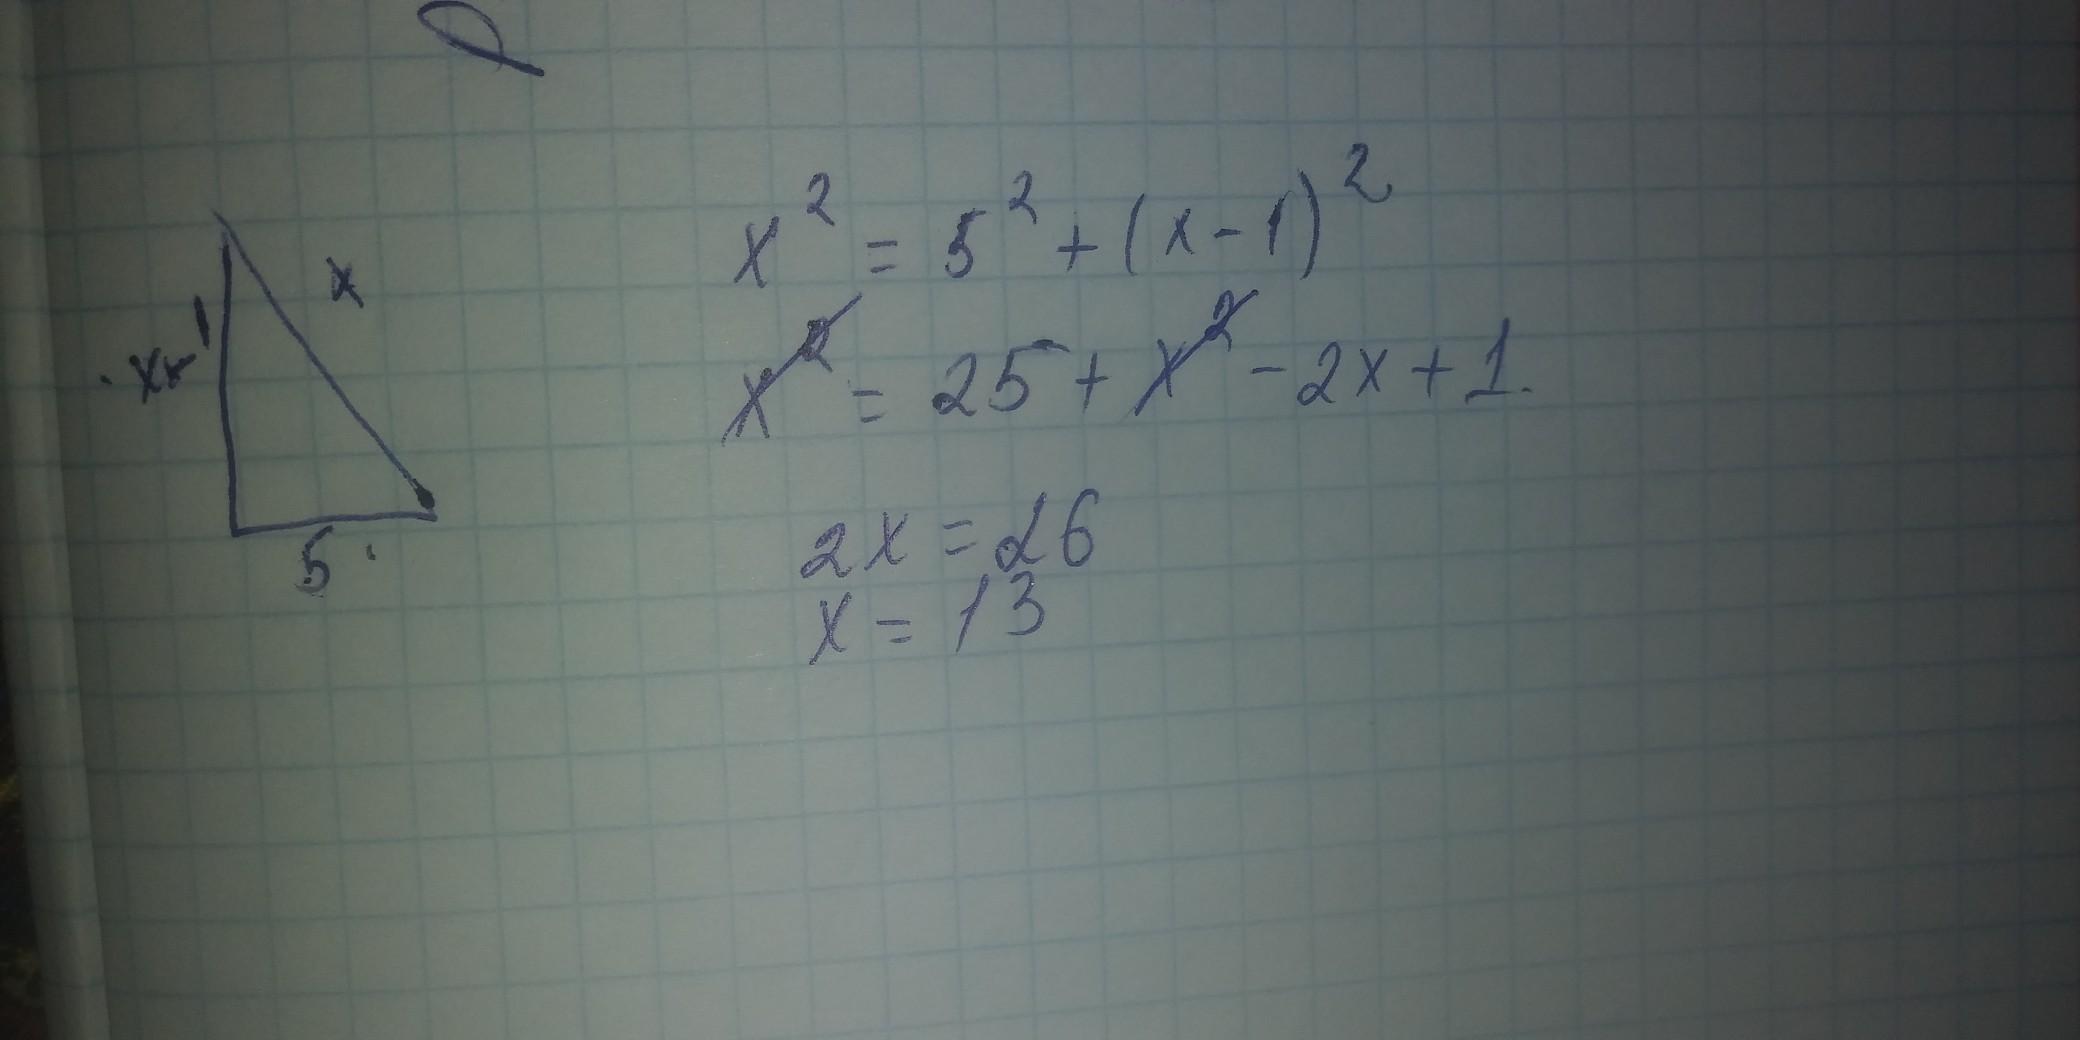 x
x-1
5
x² = 5² + (x-1)²
x² = 25 + x² - 2x + 1
2x = 26
x = 13